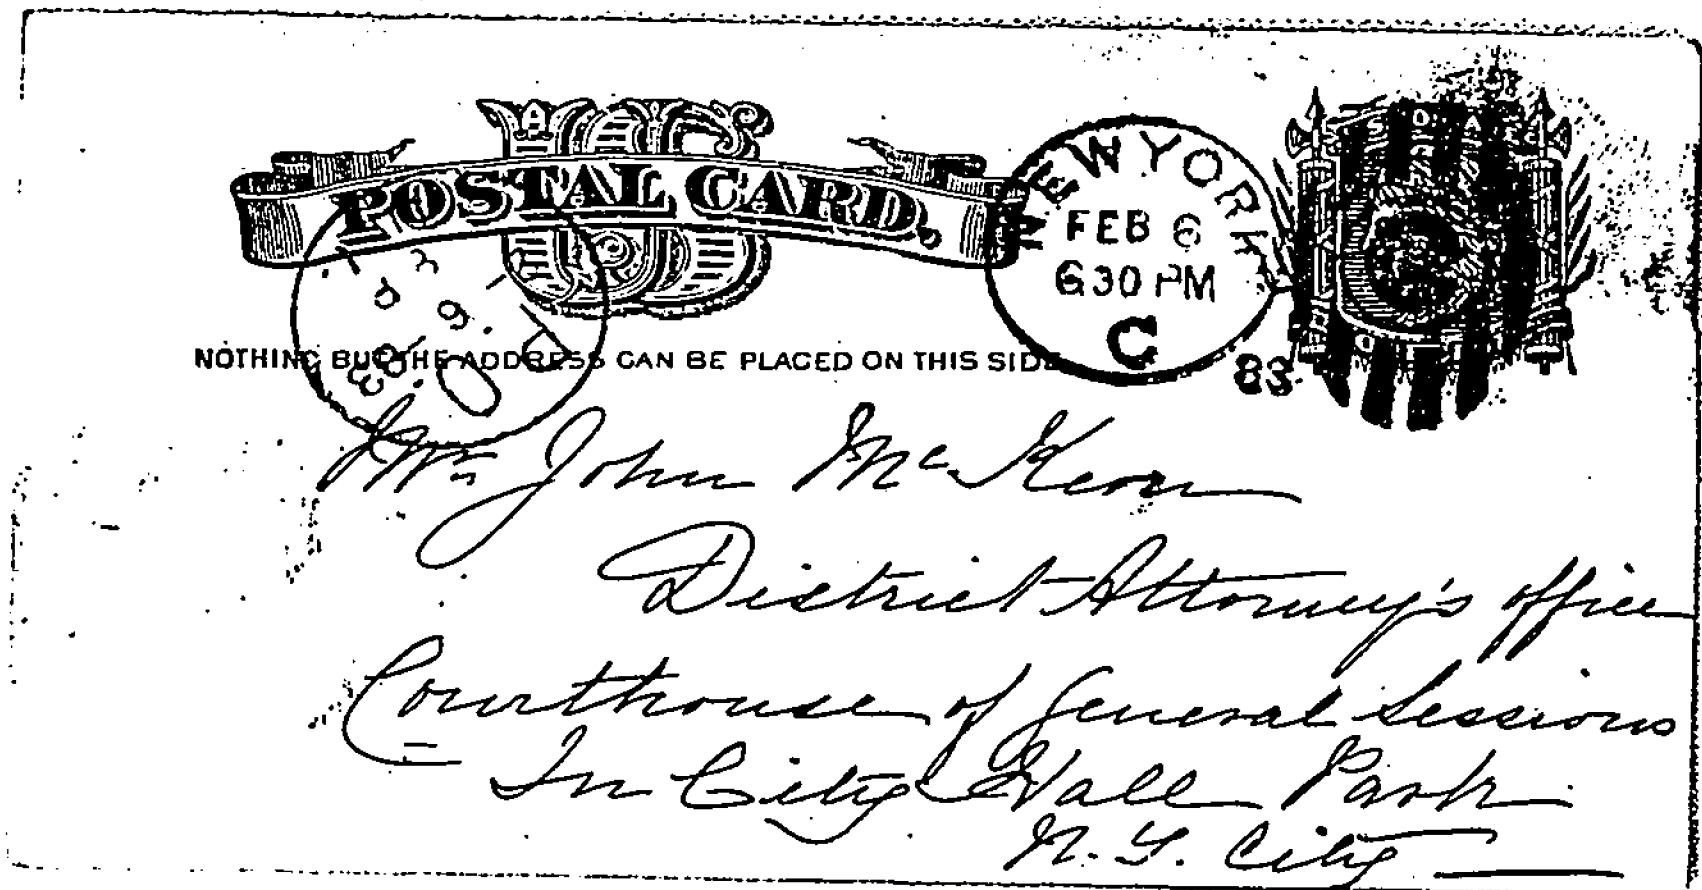 US
POSTAL CARD.
NEW YORK
FEB 6
6 30 PM
C
83
NOTHING BUT THE ADDRESS CAN BE PLACED ON THIS SIDE
Mr. John McKeon
District Attorney's office
Courthouse of General Sessions
In City Hall Park
N. Y. City